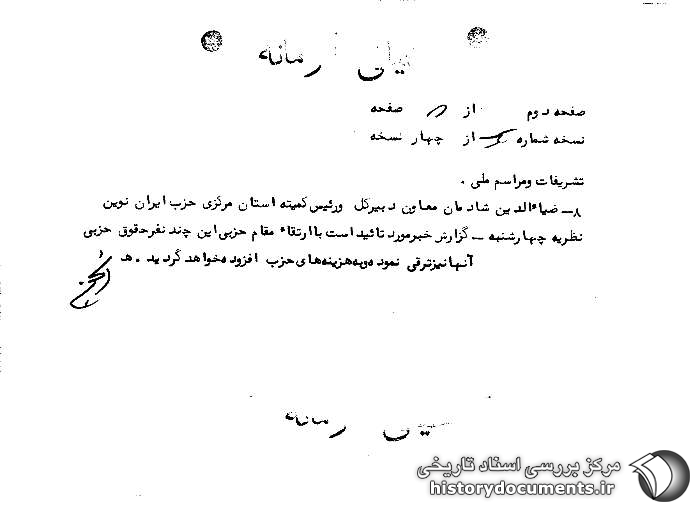 خیلی محرمانه
صفحه دوم از صفحه
نسخه شماره از چهار نسخه
تشریفات ومراسم ملی .
۸ــ ضیاءالدین شادمان معاون دبیرکل ورئیس کمیته استان مرکزی حزب ایران نوین
نظریه چهارشنبه ــ گزارش خبرمورد تائید است باارتقاء مقام حزبی این چند نفرحقوق حزبی
آنهانیزترقی نموده وبه هزینه های حزب افزوده خواهد گردید . هـ
خیلی محرمانه
مرکز بررسی اسناد تاریخی
historydocuments.ir